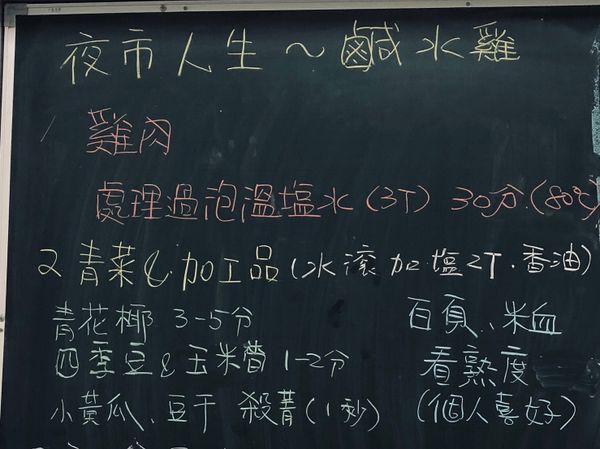 夜市人生～鹹水雞
1 雞肉
處理過泡溫塩水(3T) 30分(80℃)
2 青菜&加工品(水滾加塩2T.香油)
青花椰 3-5分
四季豆&玉米筍 1-2分
小黃瓜、豆干 殺菁(1秒)
百頁、米血
看熟度
(個人喜好)